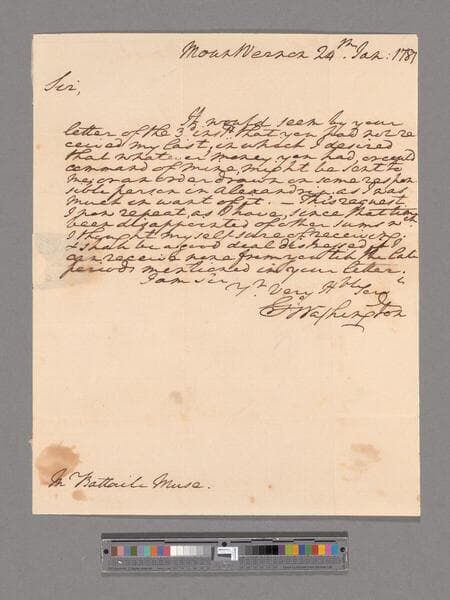 Mount Vernon 24th Jan: 1787
Sir,
It would seem by your
letter of the 3d instt. that you had not re
ceived my last, in which I desired
that what money you had, or could
command of mine, might be sent to
me, or an order drawn on some respon
sible person in Alexandria, as I was
much in want of it. — This request
I now repeat, as I have, since that time
been disappointed of other sums which
I thought myself sure of receiving.
I shall be a good deal distressed if I
can receive none from you till the late
period mentioned in your letter.
I am Sir Yr Very Hble Servt
Go: Washington
Mr Battaile Muse.